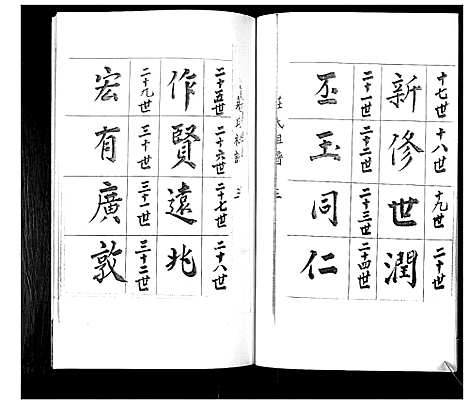 十七世 十八世 十九世 二十世
新 修 世 潤
二十一世 二十二世 二十三世 二十四世
丕 玉 同 仁
二十五世 二十六世 二十七世 二十八世
作 賢 遠 兆
二十九世 三十世 三十一世 三十二世
宏 有 廣 敦